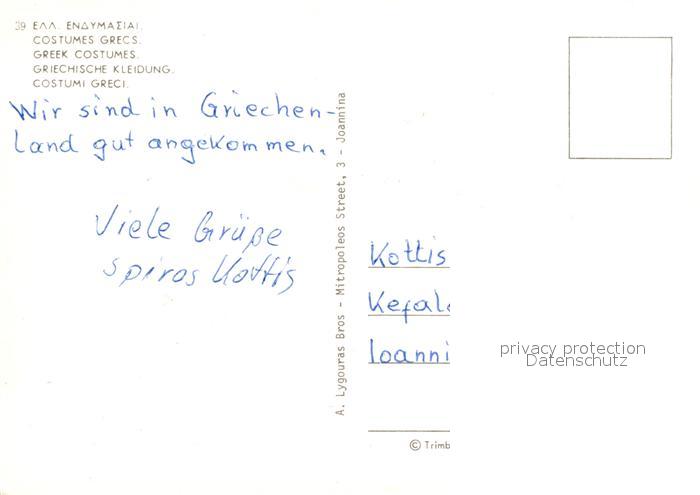 39 ΕΛΛ. ΕΝΔΥΜΑΣΙΑΙ.
COSTUMES GRECS.
GREEK COSTUMES.
GRIECHISCHE KLEIDUNG.
COSTUMI GRECI.
Wir sind in Griechen-
land gut angekommen.
Viele Grüße
Spiros Kottis
A. Lygouras Bros - Mitropoleos Street, 3 - Joannina
Kottis
Kefal
Ioanni
privacy protection
Datenschutz
© Trimb